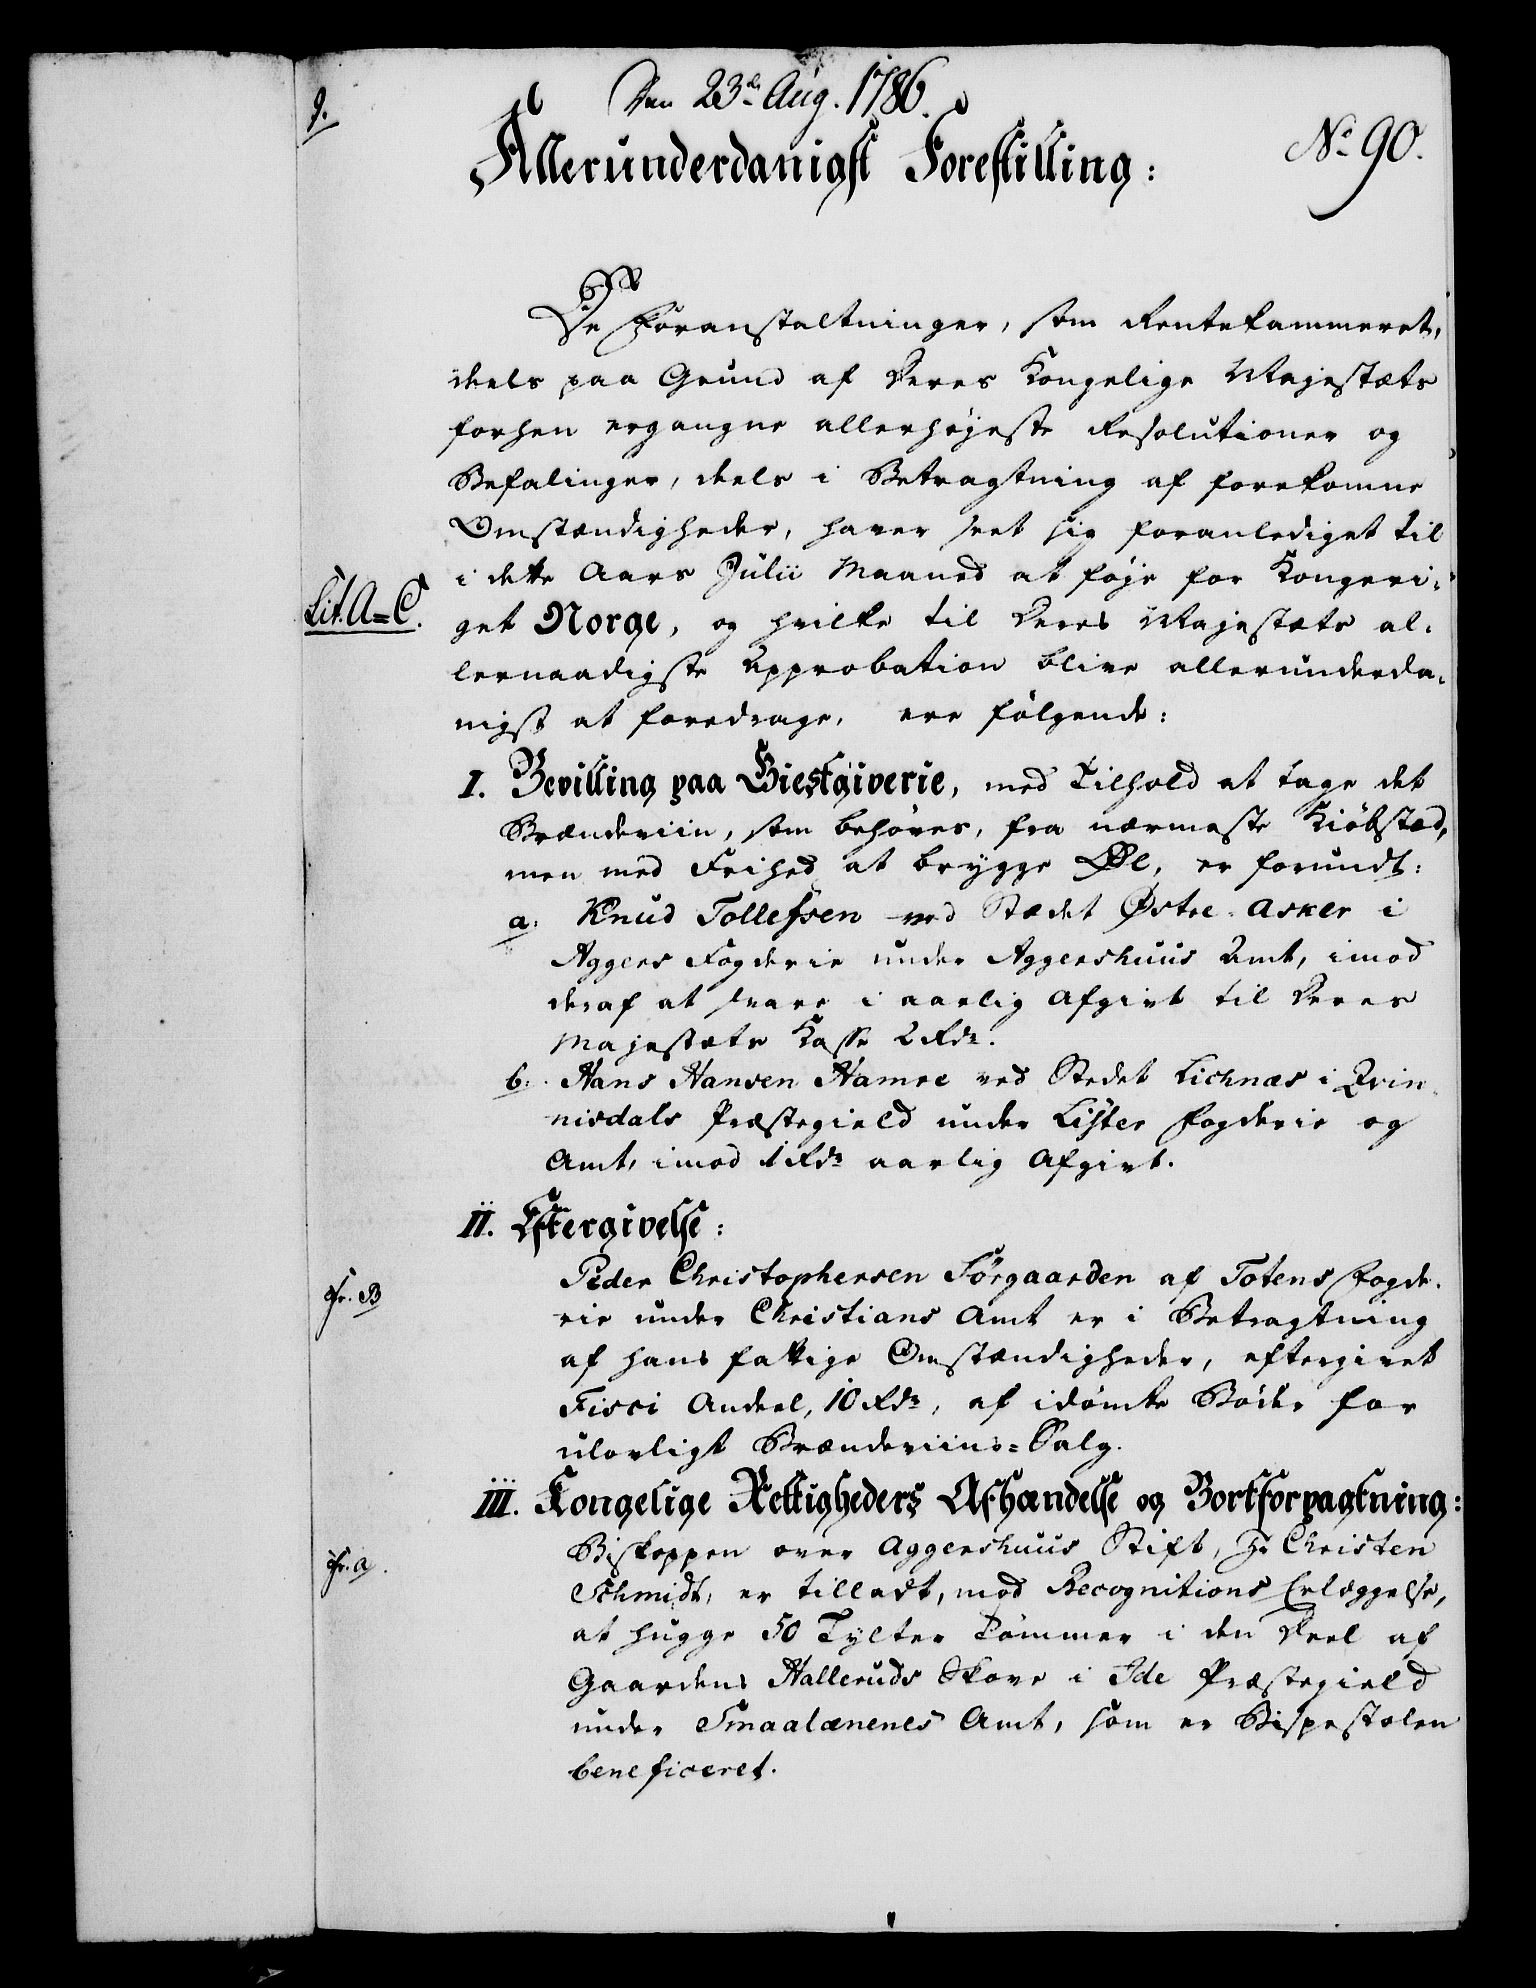 9.
Den 23de Aug. 1786.
No 90.
Allerunderdanigst Forestilling:
De Foranstaltninger, som Rentekammeret,
deels paa Grund af Deres Kongelige Majestæts
forhen ergangne allerhøjeste Resolutioner og
Befalinger, deels i Betragtning af forekomne
Omstændigheder, haver seet sig foranlediget til
i dette Aars Julii Maaned at føje for Kongeri-
Lit. A=C.
get Norge, og hvilke til Deres Majestæts al-
lernaadigste Approbation blive allerunderda-
nigst at foredrage, ere følgende:
I. Bevilling paa Giestgiverie, med Tilhold at tage det
Brændeviin, som behøves, fra nærmeste Kiøbstæd,
men med Frihed at brygge Øl, er forundt:
a. Knud Tollefsen ved Stædet Østre-Asker i
Aggers Fogderie under Aggershuus Amt, imod
deraf at svare i aarlig Afgivt til Deres
Majestæts Kasse 2 Rdr.
b. Hans Hansen Hamre ved Stedet Lichnæs i Qvin-
nisdals Præstegield under Lister Fogderie og
Amt, imod 1 Rdr aarlig Afgivt.
II. Eftergivelse:
Peder Christophersen Sørgaarden af Totens Fogde-
fr. B
rie under Christians Amt er i Betragtning
af hans fattige Omstændigheder, eftergivet
Fisci Andeel, 10 Rdr, af idømte Bøder for
ulovligt Brændeviins=Salg.
III. Kongelige Rettigheders Afhændelse og Bortforpagtning:
Biskoppen over Aggershuus Stift, Hr Christen
fr. a.
Schmidt, er tilladt, mod Recognitions Erlæggelse,
at hugge 50 Tylter Tømmer i den Deel af
Gaardens Halleruds Skove i Ide Præstegield
under Smaalænenes Amt, som er Bispestolen
beneficeret.